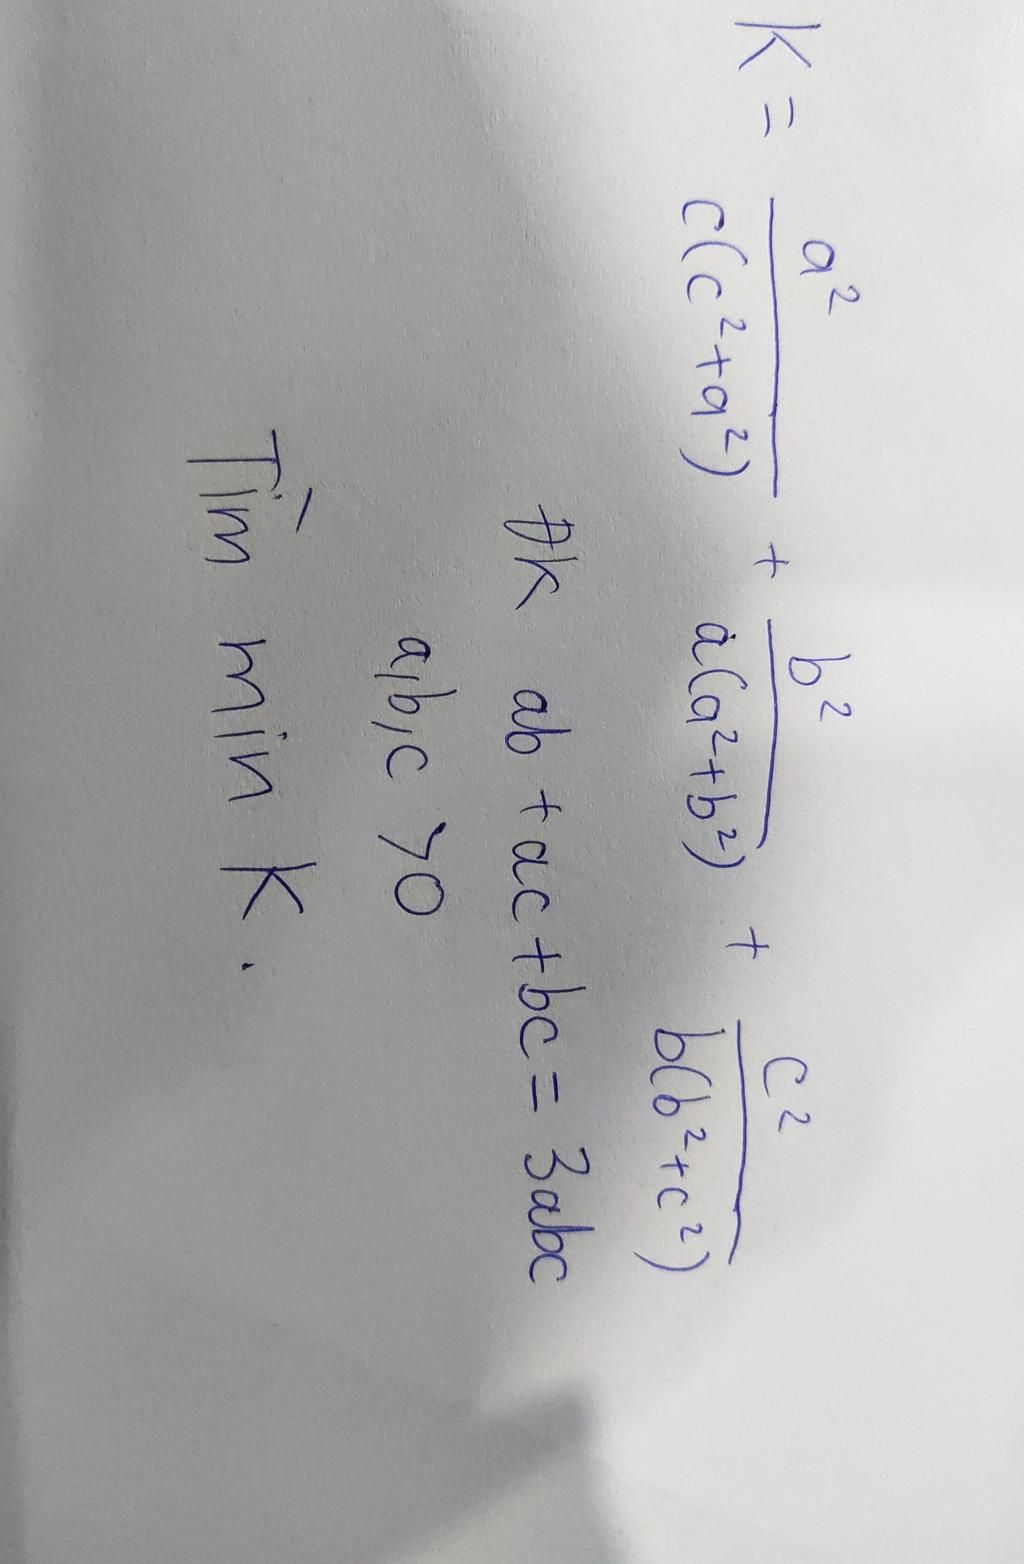 K = a²/c(c²+a²) + b²/a(a²+b²) + c²/b(b²+c²)
ĐK ab + ac + bc = 3abc
a,b,c >0
Tìm min K.